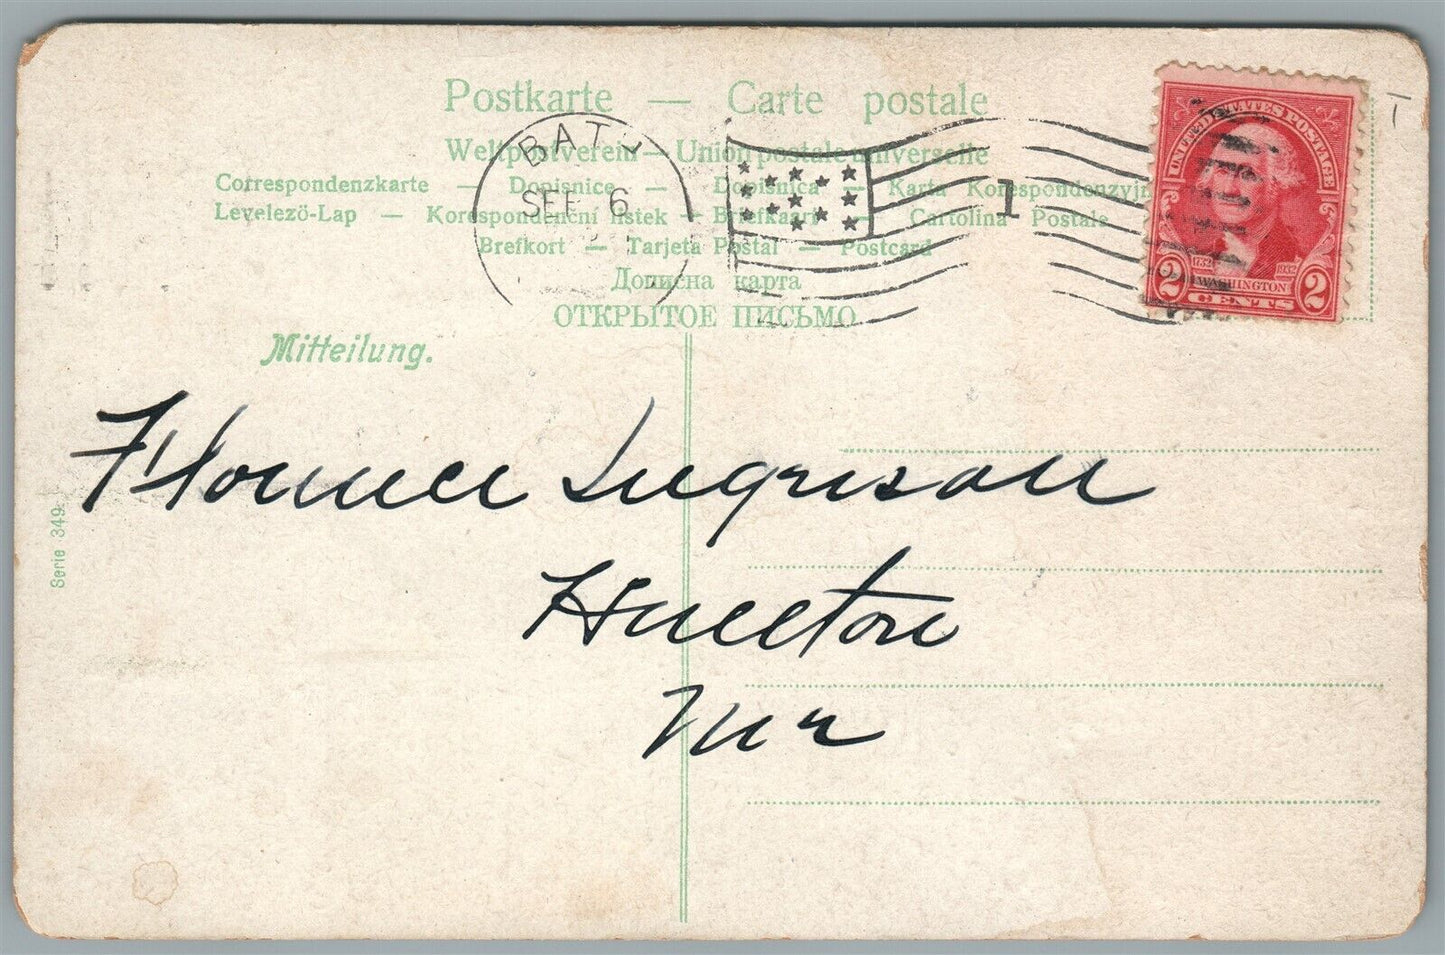 Postkarte — Carte postale
Weltpostverein — Union postale universelle
Correspondenzkarte — Dopisnice — Dopisnica — Karta Korespondenzyjn
Levelező-Lap — Korespondenční lístek — Briefkaart — Cartolina Postale
Brefkort — Tarjeta Postal — Postcard
Дописна карта
ОТКРЫТОЕ ПИСЬМО
BAT
SEP 6
1
UNITED STATES POSTAGE
1732 1932
WASHINGTON
2 CENTS 2
Mitteilung.
Serie 349.
Florence